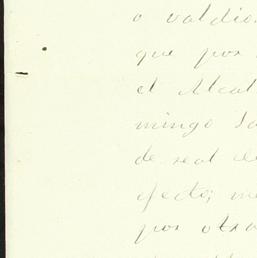 o valdio
que por
el Alcal
mingo Sa
de real
efecto; me
por otra